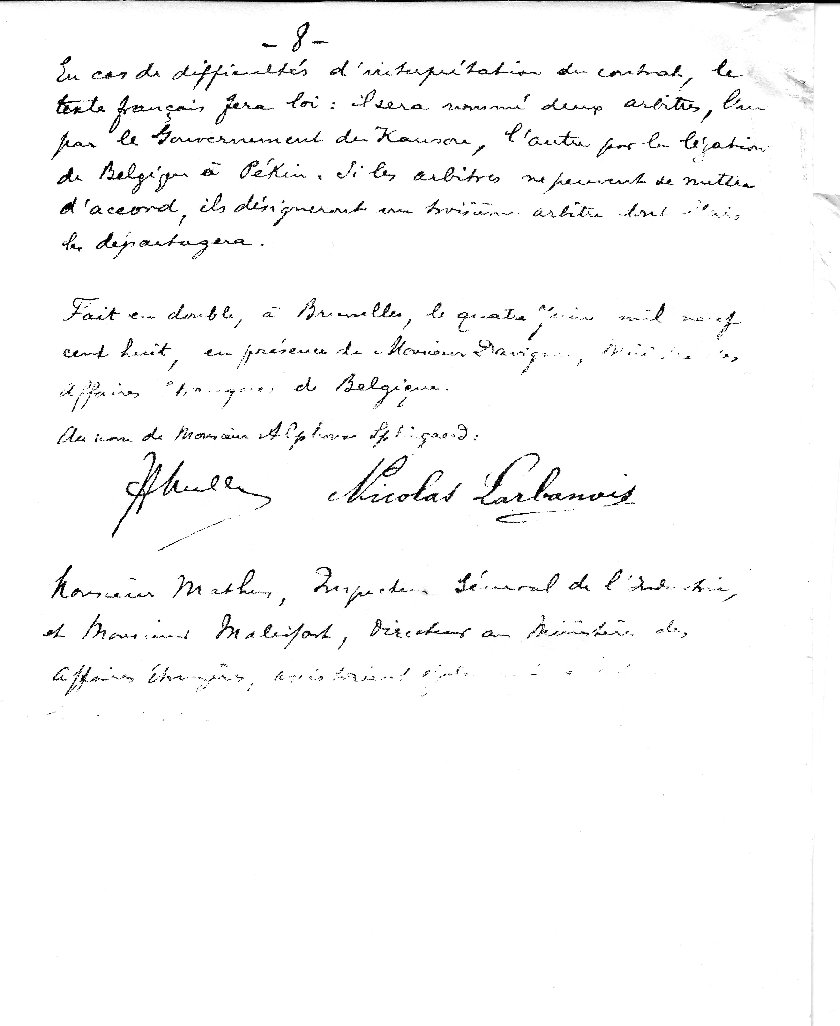 - 8 -
En cas de difficultés d'interprétation du contrat, le
texte français fera loi : il sera nommé deux arbitres, l'un
par le Gouvernement du Kansou, l'autre par la légation
de Belgique à Pékin. Si les arbitres ne peuvent se mettre
d'accord, ils désigneront un troisième arbitre dont l'avis
les départagera.
Fait en double, à Bruxelles, le quatre Juin mil neuf
cent huit, en présence de Monsieur Davignon, Ministre des
Affaires Etrangères de Belgique.
Au nom de Monsieur Alphonse Splingaerd :
Nicolas Larbanois
Monsieur Mathieu, Inspecteur Général de l'Industrie,
et Monsieur Malcifort, Directeur au Ministère des
Affaires Etrangères, assistaient